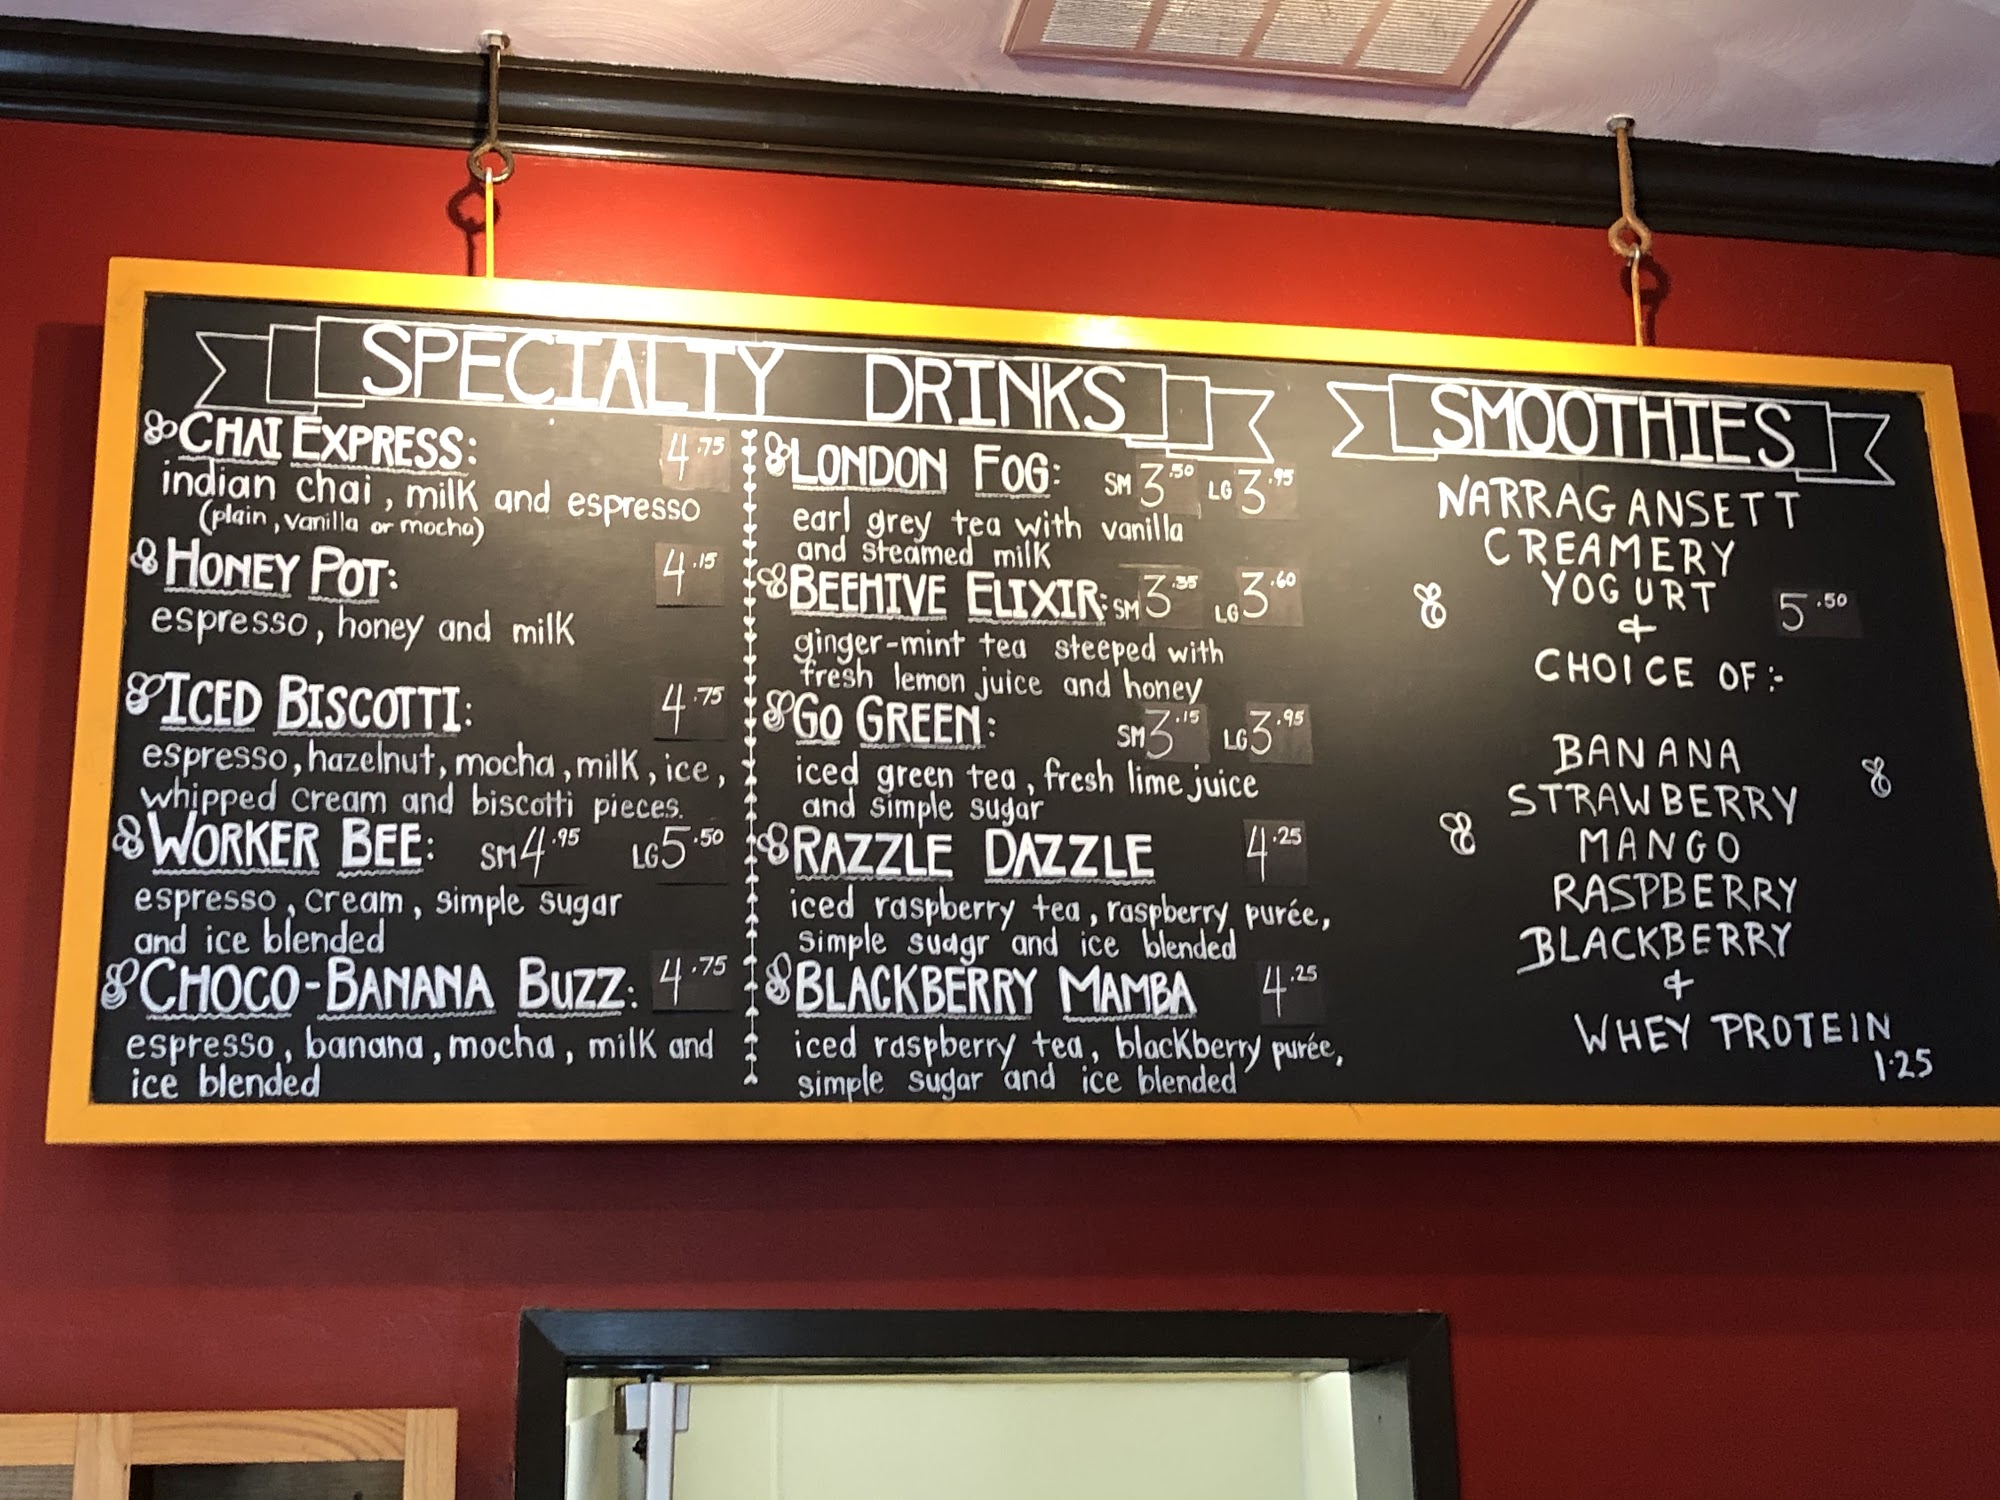 SPECIALTY DRINKS
CHAI EXPRESS: 4.75
indian chai, milk and espresso
(plain, vanilla or mocha)
HONEY POT: 4.15
espresso, honey and milk
ICED BISCOTTI: 4.75
espresso, hazelnut, mocha, milk, ice,
whipped cream and biscotti pieces.
WORKER BEE: SM 4.95 LG 5.50
espresso, cream, simple sugar
and ice blended
CHOCO-BANANA BUZZ: 4.75
espresso, banana, mocha, milk and
ice blended
LONDON FOG: SM 3.50 LG 3.95
earl grey tea with vanilla
and steamed milk
BEEHIVE ELIXIR: SM 3.35 LG 3.60
ginger-mint tea steeped with
fresh lemon juice and honey
GO GREEN: SM 3.15 LG 3.95
iced green tea, fresh lime juice
and simple sugar
RAZZLE DAZZLE 4.25
iced raspberry tea, raspberry purée,
simple suagr and ice blended
BLACKBERRY MAMBA 4.25
iced raspberry tea, blackberry purée,
simple sugar and ice blended
SMOOTHIES
NARRAGANSETT
CREAMERY
YOGURT 5.50
&
CHOICE OF:-
BANANA
STRAWBERRY
MANGO
RASPBERRY
BLACKBERRY
&
WHEY PROTEIN
1.25